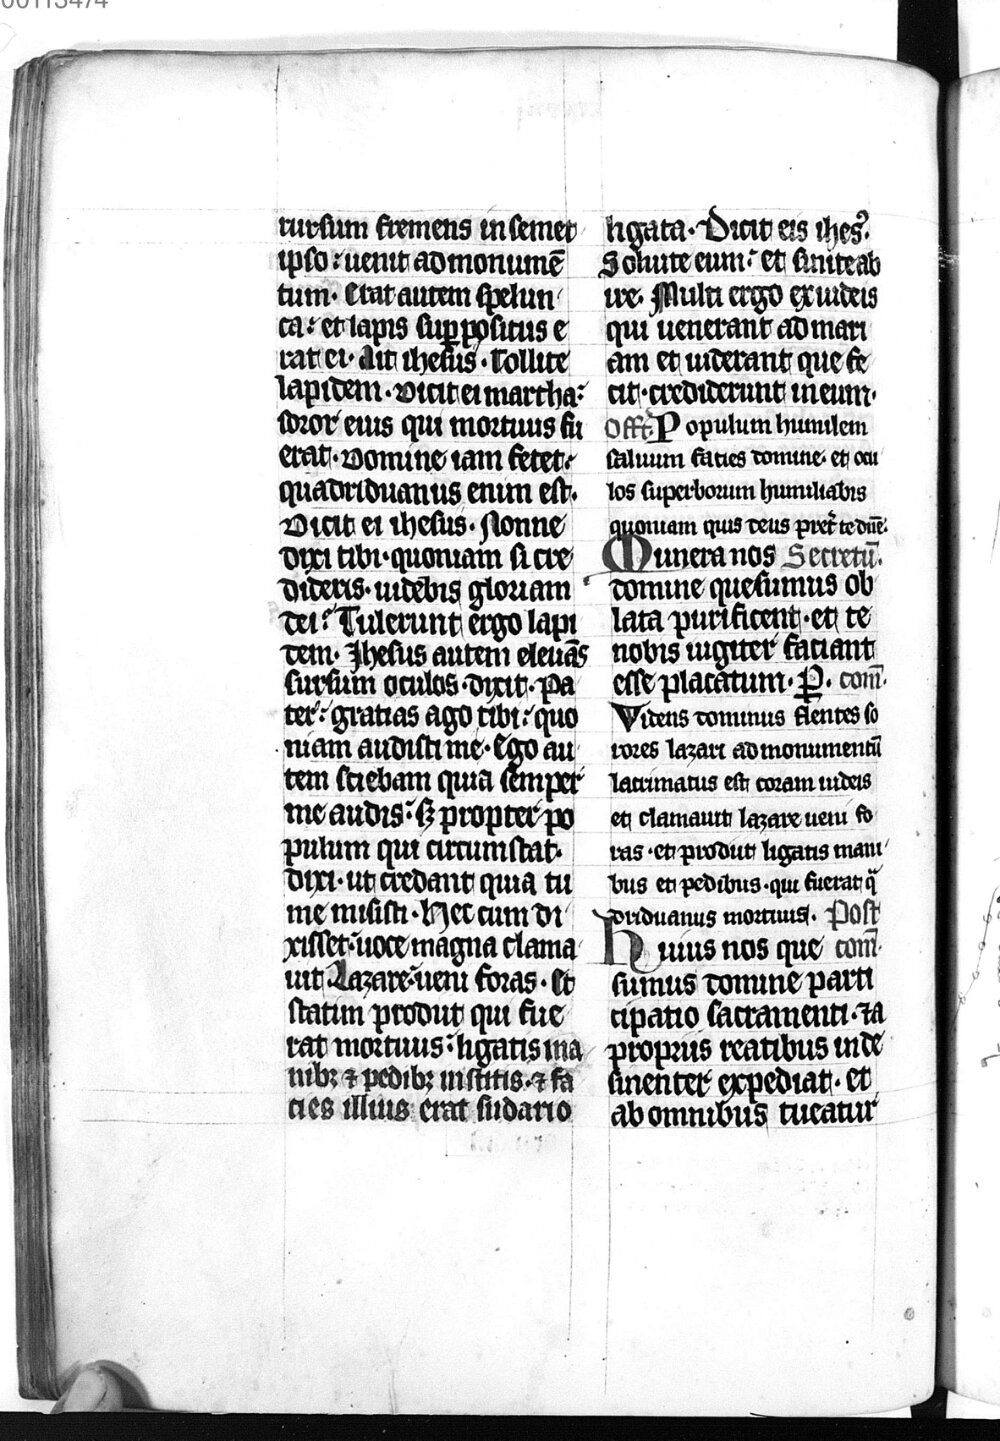 00113474
rursum fremens in semet
ipso : uenit ad monumē
tum · Erat autem spelun
ca : et lapis suppositus e
rat ei · Ait ihesus · Tollite
lapidem · Dicit ei martha :
soror eius qui mortuus fu
erat · Domine iam fetet :
quadriduanus enim est ·
Dicit ei ihesus · Nonne
dixi tibi · quoniam si cre
dideris · uidebis gloriam
dei : Tulerunt ergo lapi
dem · Jhesus autem eleuās
sursum oculos · dixit · Pa
ter : gratias ago tibi : quo
niam audisti me · Ego au
tem sciebam quia semper
me audis : sꝫ propter po
pulum qui circumstat ·
dixi · ut credant quia tu
me misisti · Hec cum di
xisset : uoce magna clama
uit Lazare : ueni foras · Et
statim prodiit qui fue
rat mortuus : ligatis ma
nibꝫ ⁊ pedibꝫ institis · ⁊ fa
cies illius erat sudario
ligata · Dicit eis ihes᷒ ·
Soluite eum : et sinite ab
ire · Multi ergo ex iudeis
qui uenerant ad mari
am et uiderant que fe
cit · crediderunt in eum ·
Off̄t Populum humilem
saluum facies domine · et ocu
los superborum humiliabis
quoniam quis deus pret̄ te dn̄e ·
Munera nos Secretū ·
domine quesumus ob
lata purificent · et te
nobis iugiter faciant
esse placatum · P · com̄ ·
Videns dominus flentes so
rores lazari ad monumentū
lacrimatus est coram iudeis
et clamauit lazare ueni fo
ras · et prodiit ligatis mani
bus et pedibus · qui fuerat qͣ
driduanus mortuus · Post
Huius nos que com̄ ·
sumus domine parti
cipatio sacramenti · ⁊ a
propriis reatibus inde
sinenter expediat · et
ab omnibus tueatur